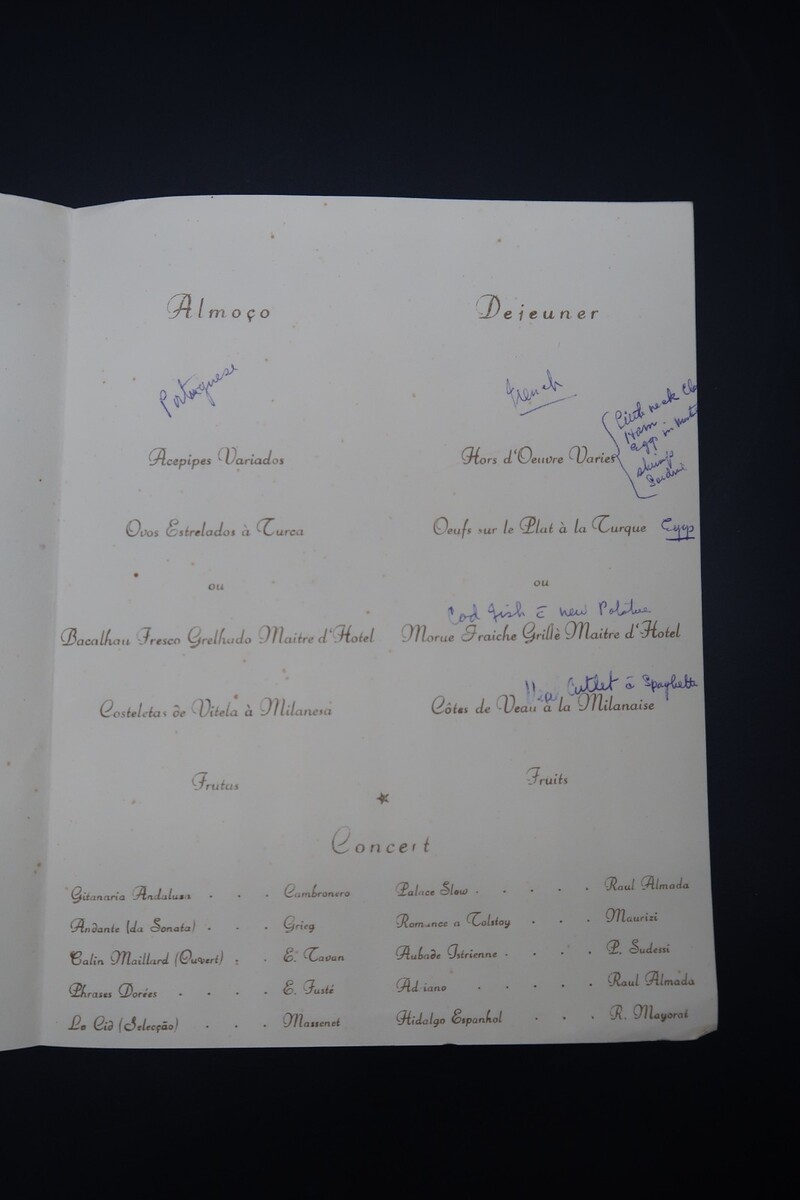 Almoço
Portuguese
Acepipes Variados
Ovos Estrelados à Turca
ou
Bacalhau Fresco Grelhado Maitre d'Hotel
Costeletas de Vitela à Milanesa
Frutas
Dejeuner
French
Hors d'Oeuvre Varies
Little neck
Ham
Eggs in
shrimp
Sardine
Oeufs sur le Plat à la Turque Eggs
ou
Cod fish c̄ new Potatoe
Morue Fraiche Grillè Maitre d'Hotel
Cutlet c̄ Spaghetti
Côtes de Veau à la Milanaise
Fruits
Concert
Gitanaria Andaluza . . . Cambronero
Andante (da Sonata) . . . Grieg
Calin Maillard (Ouvert) . . E. Tavan
Phrases Dorées . . . . E. Fusté
Le Cid (Selecção) . . . Massenet
Palace Slow . . . . . Raul Almada
Romance a Tolstoy . . . Maurizi
Aubade Istrienne . . . . P. Sudessi
Adriano . . . . . Raul Almada
Hidalgo Espanhol . . . R. Mayoral